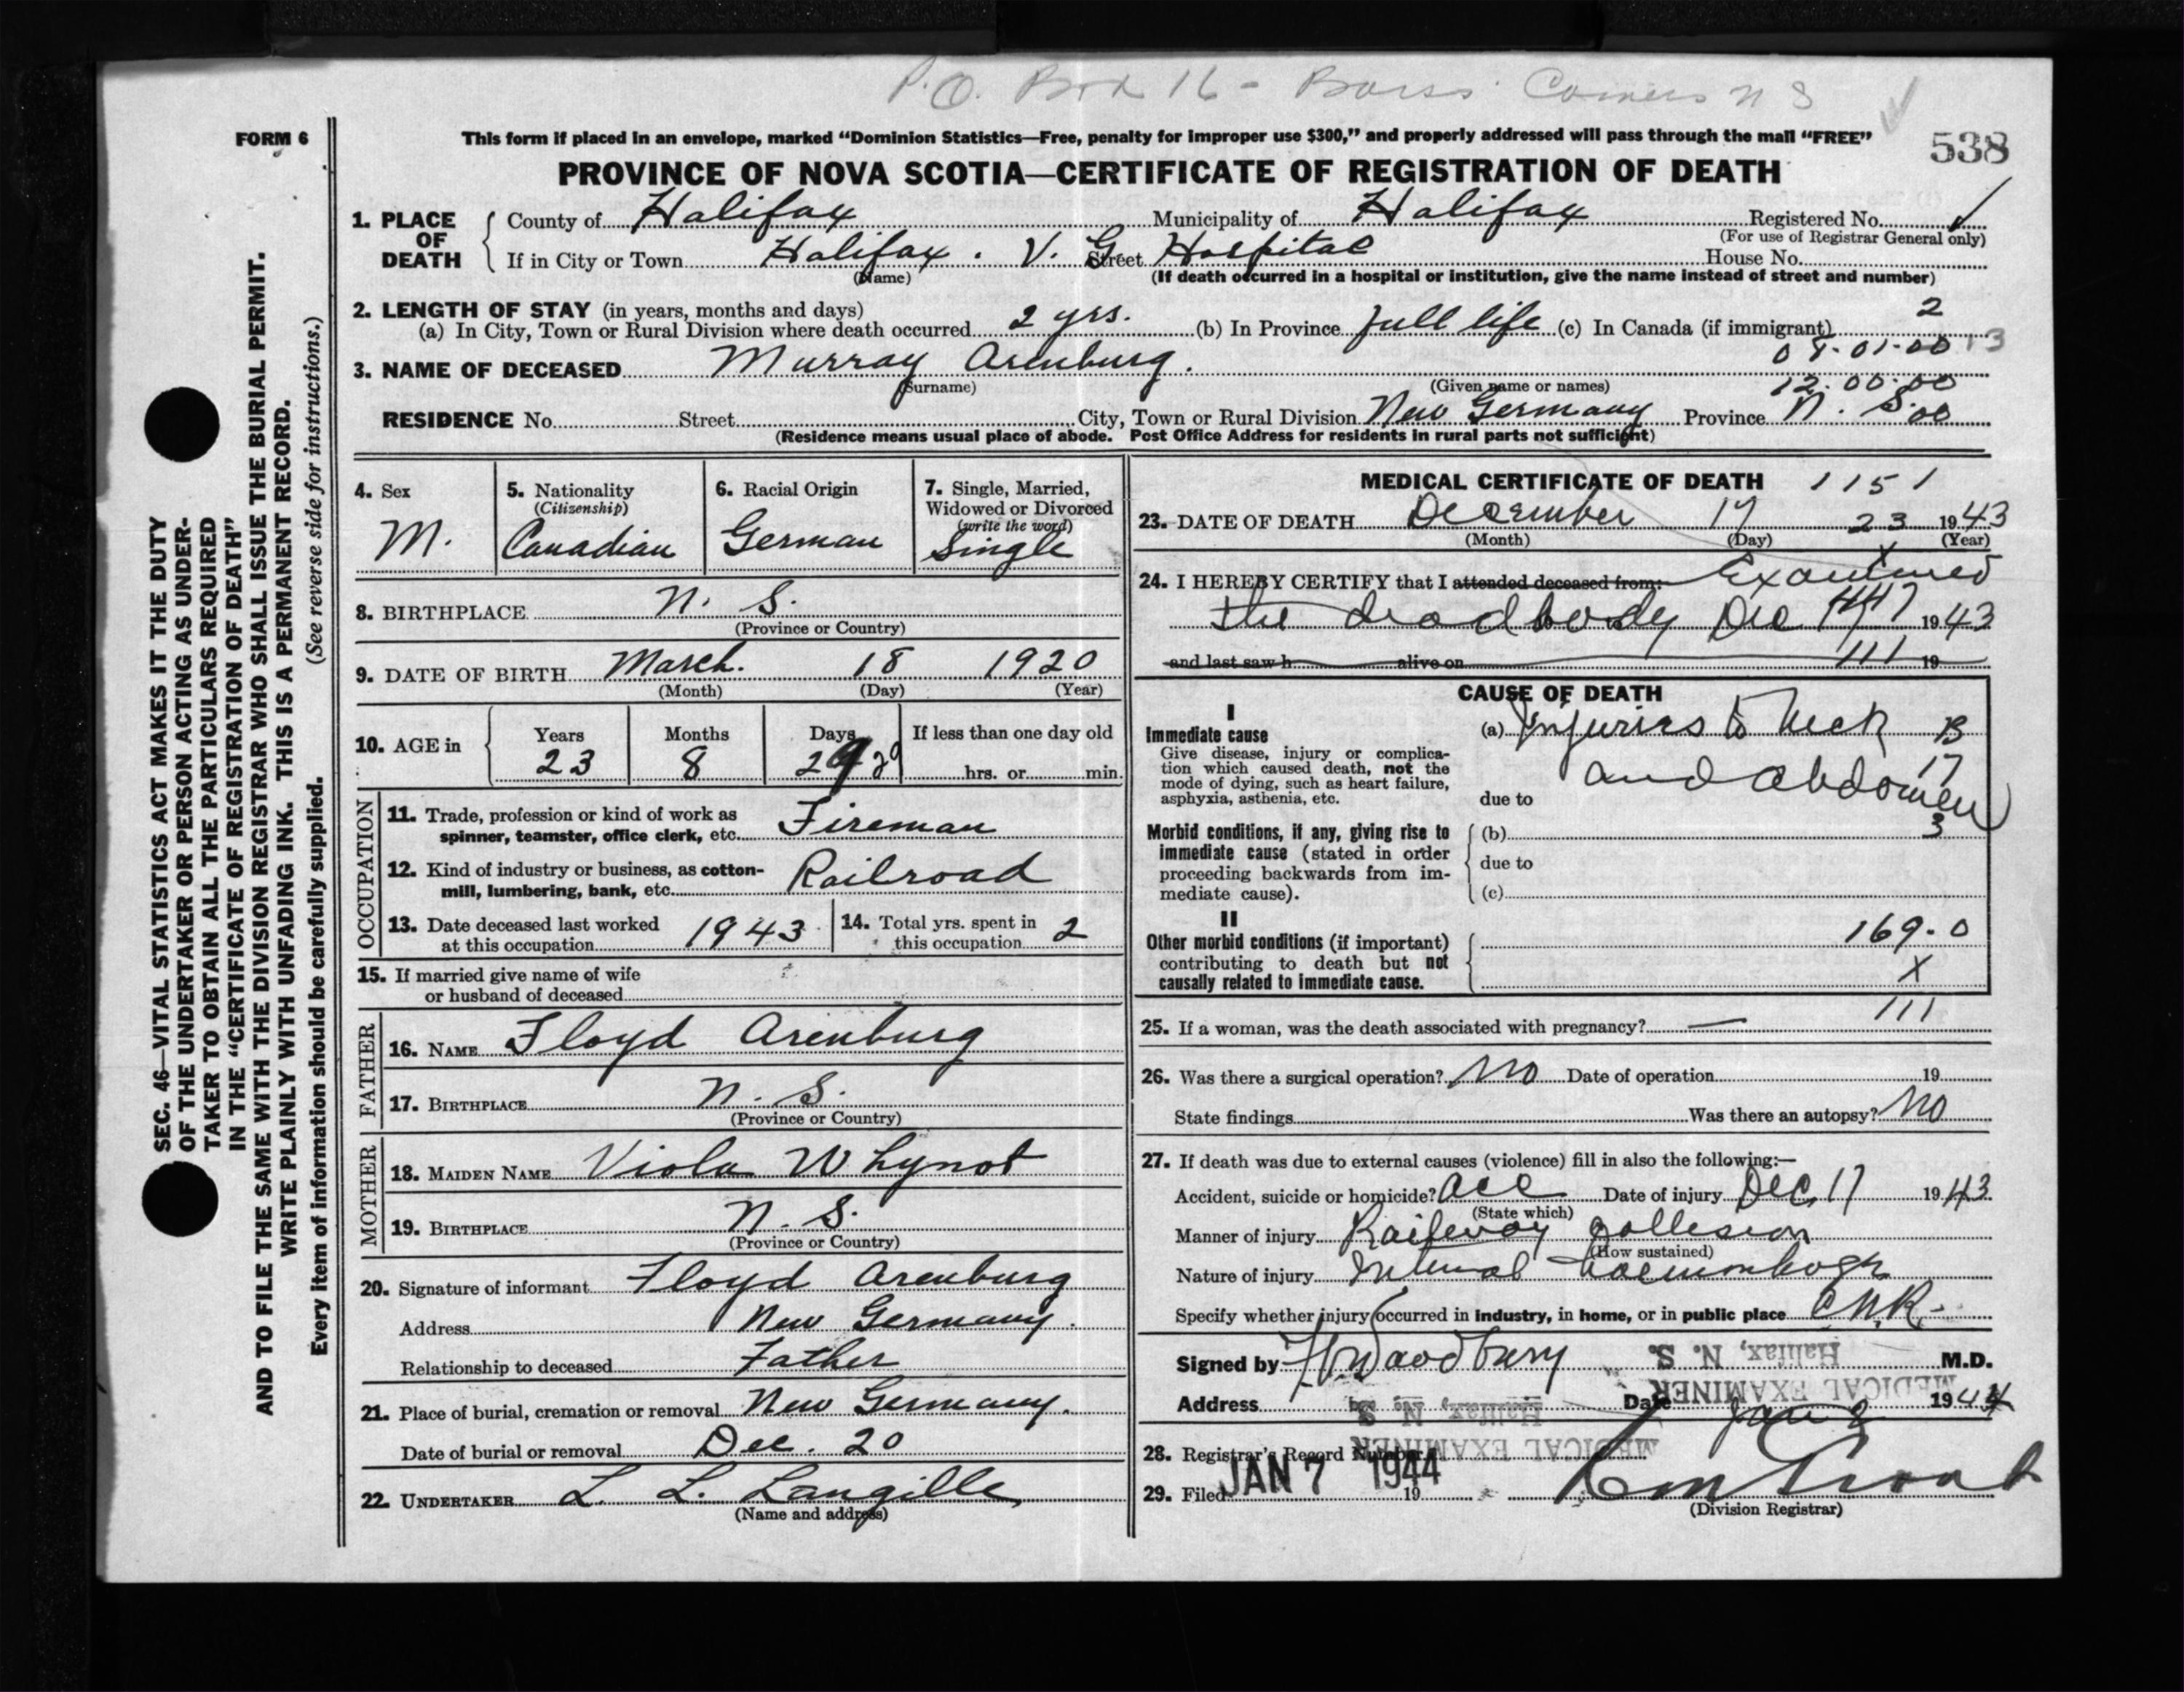 P.O. Box 16 - Barss Corners N S
FORM 6
This form if placed in an envelope, marked "Dominion Statistics—Free, penalty for improper use $300," and properly addressed will pass through the mail "FREE"
538
PROVINCE OF NOVA SCOTIA—CERTIFICATE OF REGISTRATION OF DEATH
1. PLACE OF DEATH
County of Halifax Municipality of Halifax Registered No.
(For use of Registrar General only)
If in City or Town Halifax. V. G. Street Hospital House No.
(Name) (If death occurred in a hospital or institution, give the name instead of street and number)
2. LENGTH OF STAY (in years, months and days)
(a) In City, Town or Rural Division where death occurred 2 yrs. (b) In Province full life (c) In Canada (if immigrant) 2
08-01-00 13
3. NAME OF DECEASED Murray Arenburg.
(Surname) (Given name or names) 12-00-00
RESIDENCE No. Street City, Town or Rural Division New Germany Province N. S. 00
(Residence means usual place of abode. Post Office Address for residents in rural parts not sufficient)
4. Sex M.
5. Nationality (Citizenship) Canadian
6. Racial Origin German
7. Single, Married, Widowed or Divorced (write the word) Single
8. BIRTHPLACE N. S.
(Province or Country)
9. DATE OF BIRTH March. 18 1920
(Month) (Day) (Year)
10. AGE in Years 23 Months 8 Days 29 If less than one day old hrs. or min.
OCCUPATION
11. Trade, profession or kind of work as spinner, teamster, office clerk, etc. Fireman
12. Kind of industry or business, as cotton-mill, lumbering, bank, etc. Railroad
13. Date deceased last worked at this occupation 1943
14. Total yrs. spent in this occupation 2
15. If married give name of wife or husband of deceased
FATHER
16. NAME Floyd Arenburg
17. BIRTHPLACE N. S.
(Province or Country)
MOTHER
18. MAIDEN NAME Viola Whynot
19. BIRTHPLACE N. S.
(Province or Country)
20. Signature of informant Floyd Arenburg
Address New Germany.
Relationship to deceased Father
21. Place of burial, cremation or removal New Germany.
Date of burial or removal Dec. 20
22. UNDERTAKER L. L. Langille
(Name and address)
MEDICAL CERTIFICATE OF DEATH 1151
23. DATE OF DEATH December 17 23 1943
(Month) (Day) (Year)
24. I HEREBY CERTIFY that I attended deceased from: Examined
the dead body Dec 17 1943
and last saw h alive on 111 19
CAUSE OF DEATH
I
Immediate cause
Give disease, injury or complication which caused death, not the mode of dying, such as heart failure, asphyxia, asthenia, etc.
(a) Injuries to Neck 13
and abdomen 17
due to
Morbid conditions, if any, giving rise to immediate cause (stated in order proceeding backwards from immediate cause).
(b) 3
due to
(c)
II
Other morbid conditions (if important) contributing to death but not causally related to immediate cause.
169-0
X
111
25. If a woman, was the death associated with pregnancy? —
26. Was there a surgical operation? No Date of operation 19
State findings Was there an autopsy? No
27. If death was due to external causes (violence) fill in also the following:—
Accident, suicide or homicide? Acc Date of injury Dec 17 1943
(State which)
Manner of injury Railway Collision
(How sustained)
Nature of injury Internal
Specify whether injury occurred in industry, in home, or in public place C.N.R.
Signed by Woodbury M.D.
Halifax, N. S.
MEDICAL EXAMINER
Address Date Jan 1944
Halifax, N. S.
MEDICAL EXAMINER
28. Registrar's Record Number
29. Filed JAN 7 1944 19
(Division Registrar)
SEC. 46—VITAL STATISTICS ACT MAKES IT THE DUTY
OF THE UNDERTAKER OR PERSON ACTING AS UNDER-
TAKER TO OBTAIN ALL THE PARTICULARS REQUIRED
IN THE "CERTIFICATE OF REGISTRATION OF DEATH"
AND TO FILE THE SAME WITH THE DIVISION REGISTRAR WHO SHALL ISSUE THE BURIAL PERMIT.
WRITE PLAINLY WITH UNFADING INK. THIS IS A PERMANENT RECORD.
Every item of information should be carefully supplied. (See reverse side for instructions.)